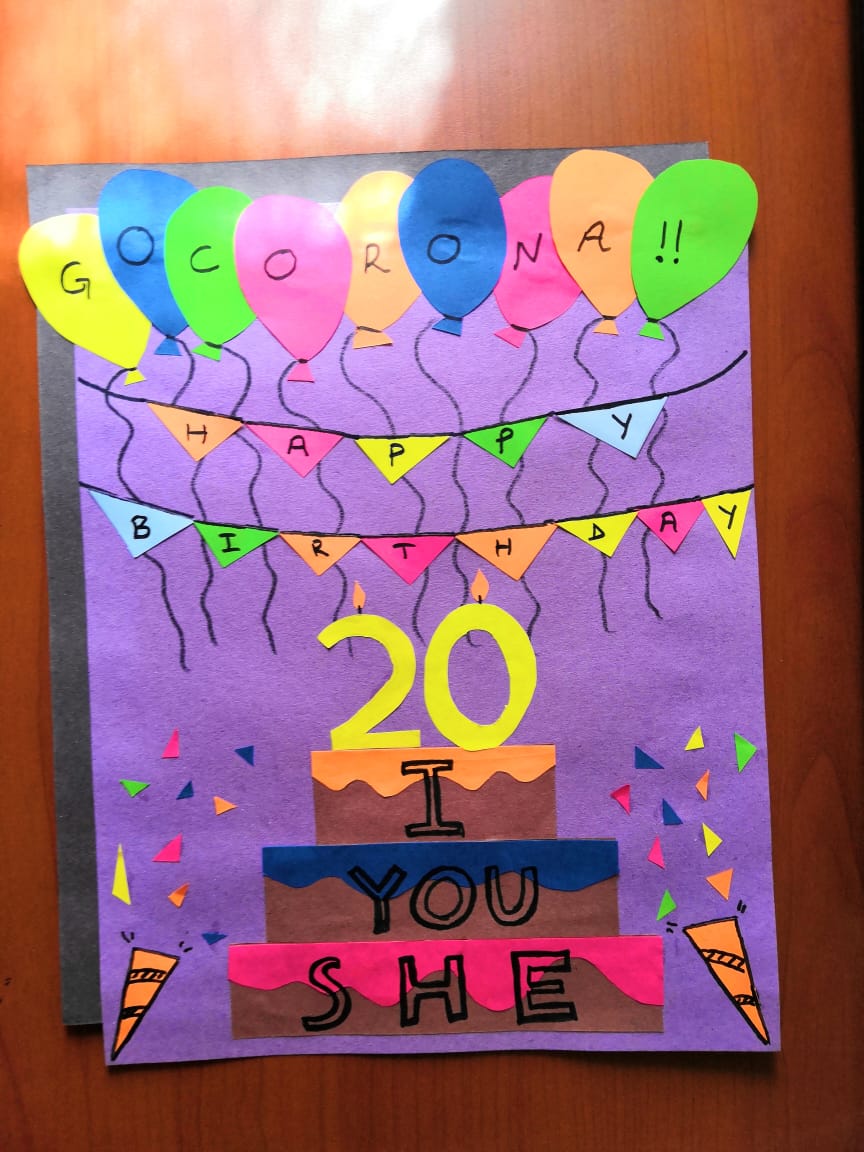 GO CORONA!!
HAPPY
BIRTHDAY
20
I
YOU
SHE